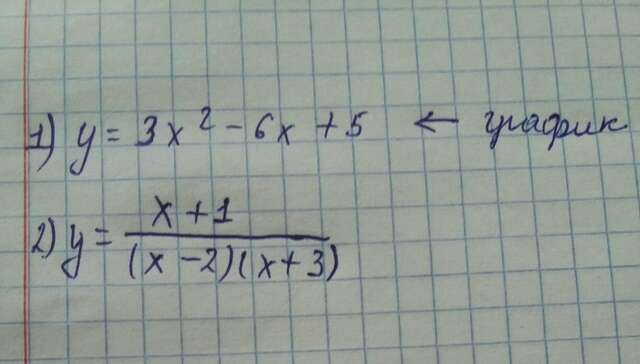 1) y = 3x² - 6x + 5 ← график
2) y = (x + 1) / ((x - 2)(x + 3))